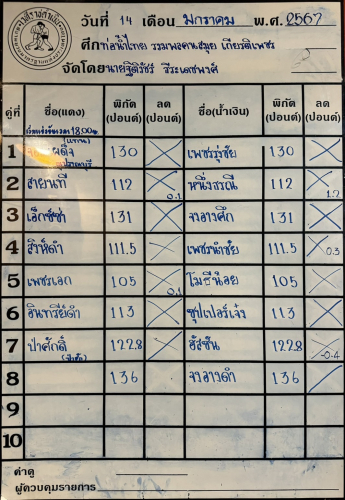 วันที่ 14 เดือน มกราคม พ.ศ. 2567
ศึก ท่อน้ำไทย รวมพลคนสมุย เกียรติเพชร
จัดโดย นายฐิติรัชร์ ธีระเดชพงศ์
คู่ที่ ชื่อ(แดง) พิกัด (ปอนด์) ลด (ปอนด์) ชื่อ(น้ำเงิน) พิกัด (ปอนด์) ลด (ปอนด์)
1 130 เพชรรุ่งชัย 130
2 สายนที 112 0.1 หนึ่งธรณี 112 1.2
3 เอ็กซ์ซ่า 131 จงอางศึก 131
4 สิงห์ดำ 111.5 เพชรนำชัย 111.5 0.3
5 เพชรเอก 105 0.1 โมซีน้อย 105
6 อินทรีย์ดำ 113 ซุปเปอร์เจ๋ง 113
7 ป่าศักดิ์ 122.8 ฮัสซัน 122.8 -0.4
8 136 จงอางดำ 136
9
10
ค่าดู
ผู้ควบคุมรายการ